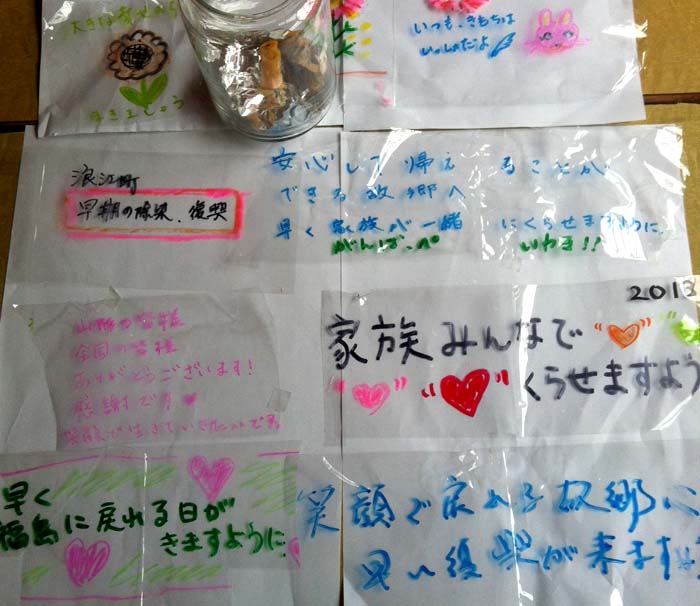 大きな幸せから
さきましょう
いつも、きもちは
いっしょだよ
浪江町
早期の除染、復興
安心して帰え ることが
できる故郷へ
早く家族が一緒 にくらせますように。
がんばっぺ いわき!!
の皆様
全国の皆様
ありがとうございます!
感謝です
2013
家族みんなで
くらせますよう
早く
福島に戻れる日が
きますように。
笑顔で戻れる故郷に
早い復興が来ます